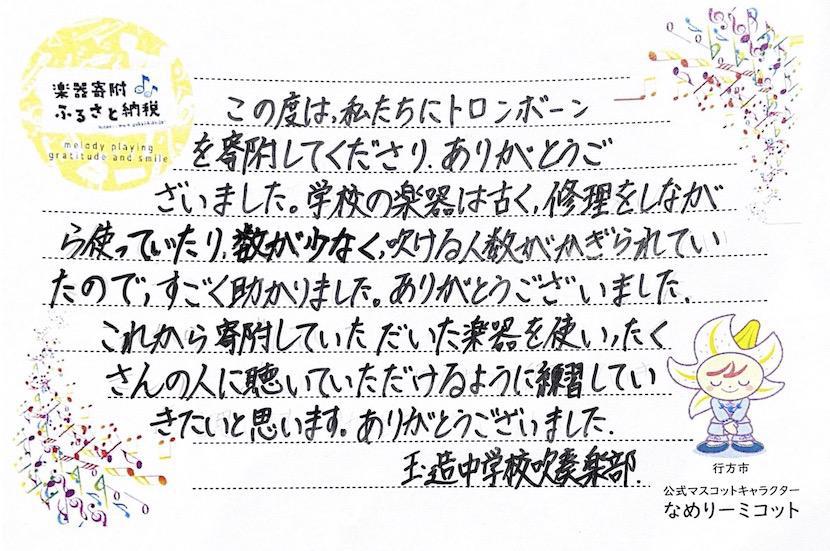 楽器寄附
ふるさと納税
melody playing
gratitude and smile
この度は、私たちにトロンボーン
を寄附してくださり、ありがとうご
ざいました。学校の楽器は古く、修理をしなが
ら使っていたり、数が少なく、吹ける人数がかぎられてい
たので、すごく助かりました。ありがとうございました。
これから寄附していただいた楽器を使い、たく
さんの人に聴いていただけるように練習してい
きたいと思います。ありがとうございました。
玉造中学校吹奏楽部.
行方市
公式マスコットキャラクター
なめりーミコット